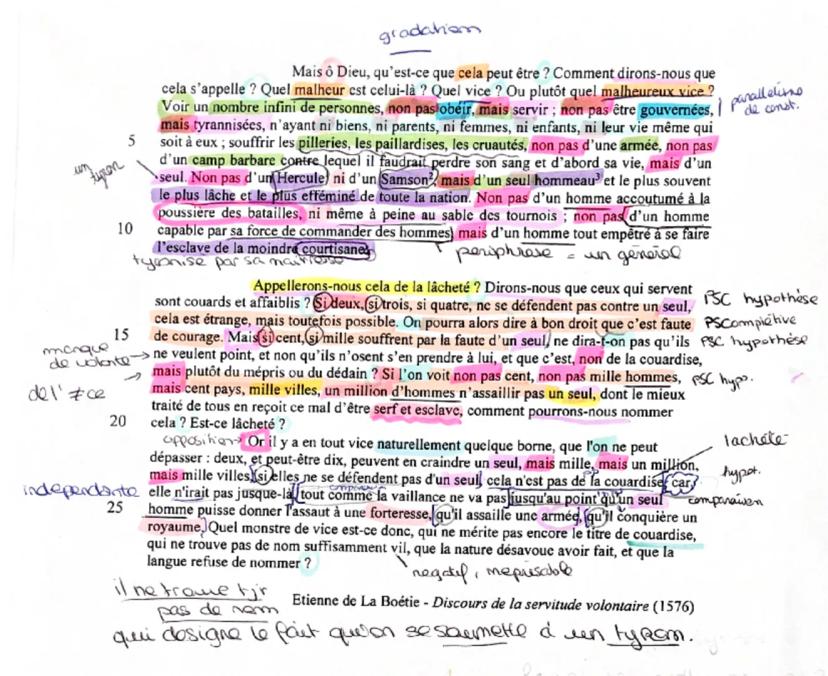 gradation
Mais ô Dieu, qu'est-ce que cela peut être ? Comment dirons-nous que
cela s'appelle ? Quel malheur est celui-là ? Quel vice ? Ou plutôt quel malheureux vice ?
Voir un nombre infini de personnes, non pas obéir, mais servir ; non pas être gouvernées,
parallélisme
de const.
mais tyrannisées, n'ayant ni biens, ni parents, ni femmes, ni enfants, ni leur vie même qui
5 soit à eux ; souffrir les pilleries, les paillardises, les cruautés, non pas d'une armée, non pas
d'un camp barbare contre lequel il faudrait perdre son sang et d'abord sa vie, mais d'un
un tyran
seul. Non pas d'un Hercule ni d'un Samson², mais d'un seul hommeau³ et le plus souvent
le plus lâche et le plus efféminé de toute la nation. Non pas d'un homme accoutumé à la
poussière des batailles, ni même à peine au sable des tournois ; non pas d'un homme
10 capable par sa force de commander des hommes, mais d'un homme tout empêtré à se faire
l'esclave de la moindre courtisane
periphrase = un général
tyrannise par sa maîtresse
Appellerons-nous cela de la lâcheté ? Dirons-nous que ceux qui servent
sont couards et affaiblis ? Si deux, si trois, si quatre, ne se défendent pas contre un seul,
PSC hypothèse
cela est étrange, mais toutefois possible. On pourra alors dire à bon droit que c'est faute
PSComplétive
15 de courage. Mais si cent, si mille souffrent par la faute d'un seul, ne dira-t-on pas qu'ils
PSC hypothèse
manque
de volonté
ne veulent point, et non qu'ils n'osent s'en prendre à lui, et que c'est, non de la couardise,
mais plutôt du mépris ou du dédain ? Si l'on voit non pas cent, non pas mille hommes,
PSC hyp.
mais cent pays, mille villes, un million d'hommes n'assaillir pas un seul, dont le mieux
de l' ≠ce
traité de tous en reçoit ce mal d'être serf et esclave, comment pourrons-nous nommer
20 cela ? Est-ce lâcheté ?
opposition
Or il y a en tout vice naturellement quelque borne, que l'on ne peut
lacheté
dépasser : deux, et peut-être dix, peuvent en craindre un seul, mais mille, mais un million,
mais mille villes, si elles ne se défendent pas d'un seul, cela n'est pas de la couardise, car
hypot.
independante
elle n'irait pas jusque-là, tout comme la vaillance ne va pas jusqu'au point qu'un seul
comparaison
25 homme puisse donner l'assaut à une forteresse, qu'il assaille une armée, qu'il conquière un
royaume. Quel monstre de vice est-ce donc, qui ne mérite pas encore le titre de couardise,
qui ne trouve pas de nom suffisamment vil, que la nature désavoue avoir fait, et que la
langue refuse de nommer ?
negatif, meprisable
il ne trouve tjr
pas de nom
Etienne de La Boétie - Discours de la servitude volontaire (1576)
qui designe le fait qu'on se soumette à un tyran.